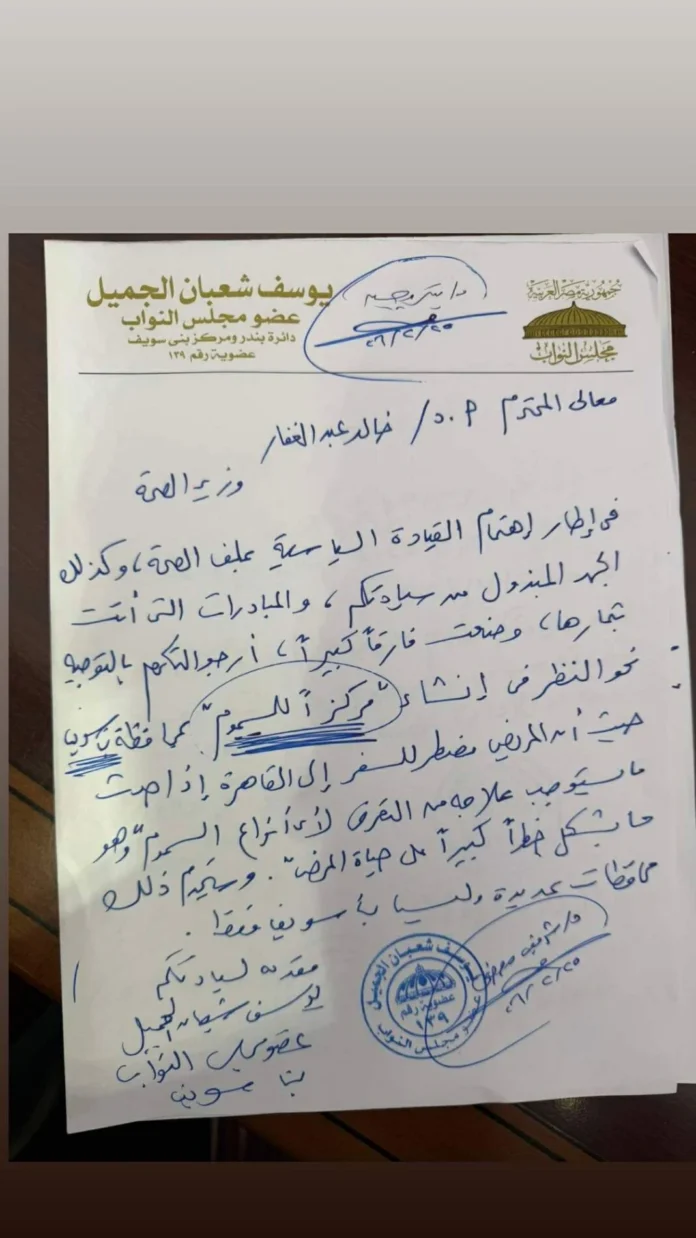 جمهورية مصر العربية
مجلس النواب
يوسف شعبان الجميل
عضو مجلس النواب
دائرة بندر ومركز بنى سويف
عضوية رقم ١٣٩
٢٦/٢/٢٥
معالى المحترم أ.د/ خالد عبد الغفار
وزير الصحة
فى إطار إهتمام القيادة السياسية بملف الصحة، وكذلك
الجهد المبذول من سيادتكم، والمبادرات التى أتت
ثمارها، وصنعت فارقاً كبيراً، أرجو التكرم بالتوجيه
نحو النظر فى إنشاء "مركزاً للسموم" بمحافظة
حيث أن المريض مضطر للسفر إلى القاهرة إذا حدث
ما يستوجب علاجه من التعرض لأى أنواع السموم "وهو
ما يشكل خطراً كبيراً على حياة المريض". وسيخدم ذلك
محافظات عديدة وليس بنى سويف فقط.
مقدمه لسيادتكم
يوسف شعبان الجميل
عضو مجلس النواب
بنى سويف
يوسف شعبان الجميل
عضوية رقم
١٣٩
عضو مجلس النواب
٢٦/٢/٢٥